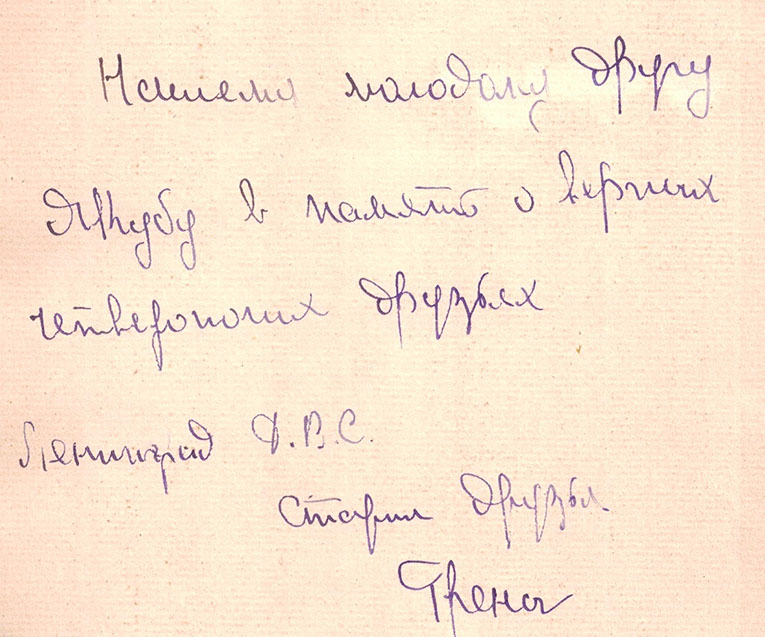 Нашему молодому другу
Якубу в память о верных
четвероногих друзьях
Ленинград Д.В.С.
Старые друзья